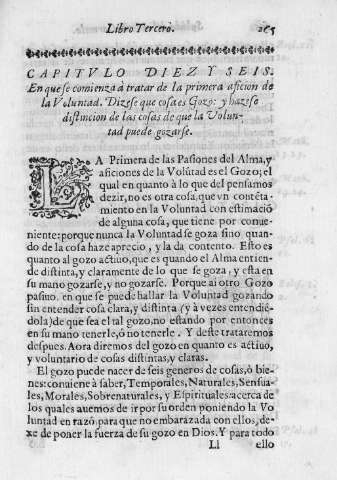 Libro Tercero. 265
CAPITVLO DIEZ Y SEIS.
En que se comienza à tratar de la primera aficion de
la Voluntad. Dizese que cosa es Gozo: y hazese
distincion de las cosas de que la Volun-
tad puede gozarse.
LA Primera de las Pasiones del Alma, y
aficiones de la Volũtad es el Gozo; el
qual en quanto à lo que del pensamos
dezir, no es otra cosa, que vn contẽta-
miento en la Voluntad con estimaciõ
de alguna cosa, que tiene por conue-
niente: porque nunca la Voluntad se goza sino quan-
do de la cosa haze aprecio, y la da contento. Esto es
quanto al gozo actiuo, que es quando el Alma entien-
de distinta, y claramente de lo que se goza, y esta en
su mano gozarse, y no gozarse. Porque ai otro Gozo
pasiuo, en que se puede hallar la Voluntad gozando
sin entender cosa clara, y distinta (y à vezes entendiẽ-
dola) de que sea el tal gozo, no estando por entonces
en su mano tenerle, ò no tenerle. Y deste trataremos
despues. Aora diremos del gozo en quanto es actiuo,
y voluntario de cosas distintas, y claras.
El gozo puede nacer de seis generos de cosas, ò bie-
nes: conuiene à saber, Temporales, Naturales, Sensua-
les, Morales, Sobrenaturales, y Espirituales: acerca de
los quales auemos de ir por su orden poniendo la Vo
luntad en razõ: para que no embarazada con ellos, de-
xe de poner la fuerza de su gozo en Dios. Y para todo
Ll ello